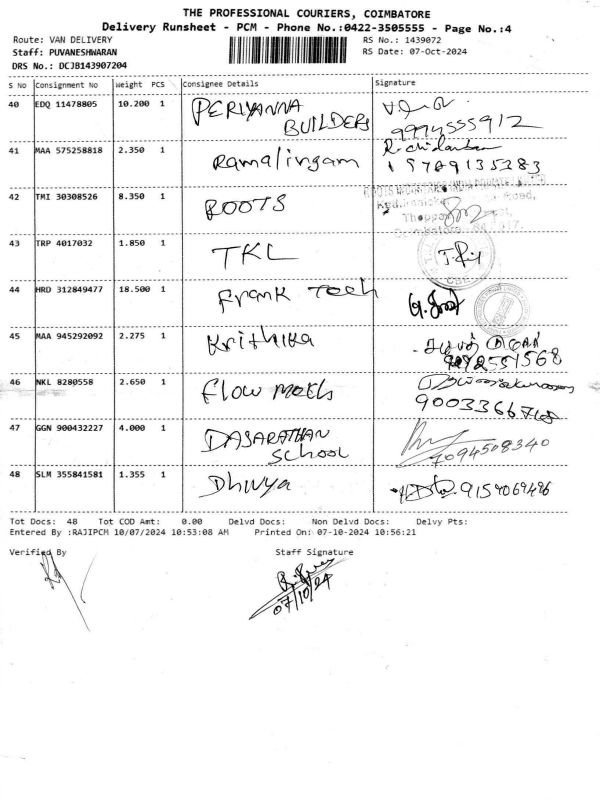 THE PROFESSIONAL COURIERS, COIMBATORE
Delivery Runsheet - PCM - Phone No.:0422-3505555 - Page No.:4
Route: VAN DELIVERY RS No.: 1439072
Staff: PUVANESHWARAN RS Date: 07-Oct-2024
DRS No.: DCJB143907204
S No Consignment No Weight PCS Consignee Details Signature
40 EDQ 11478805 10.200 1 PERIYANNA
BUILDERS 9994555912
41 MAA 575258818 2.350 1 Ramalingam R. chidambaram
42 TMI 30308526 8.350 1 ROOTS
43 TRP 4017032 1.850 1 TKL
44 HRD 312849477 18.500 1 Frank Tech
45 MAA 945292092 2.275 1 Krithika
46 NKL 8280558 2.650 1 Flow Mech
47 GGN 900432227 4.000 1 DASARATHAN
School 7094508340
48 SLM 355841581 1.355 1 Dhivya 9159069496
Tot Docs: 48 Tot COD Amt: 0.00 Delvd Docs: Non Delvd Docs: Delvy Pts:
Entered By :RAJIPCM 10/07/2024 10:53:08 AM Printed On: 07-10-2024 10:56:21
Verified By Staff Signature
07/10/24